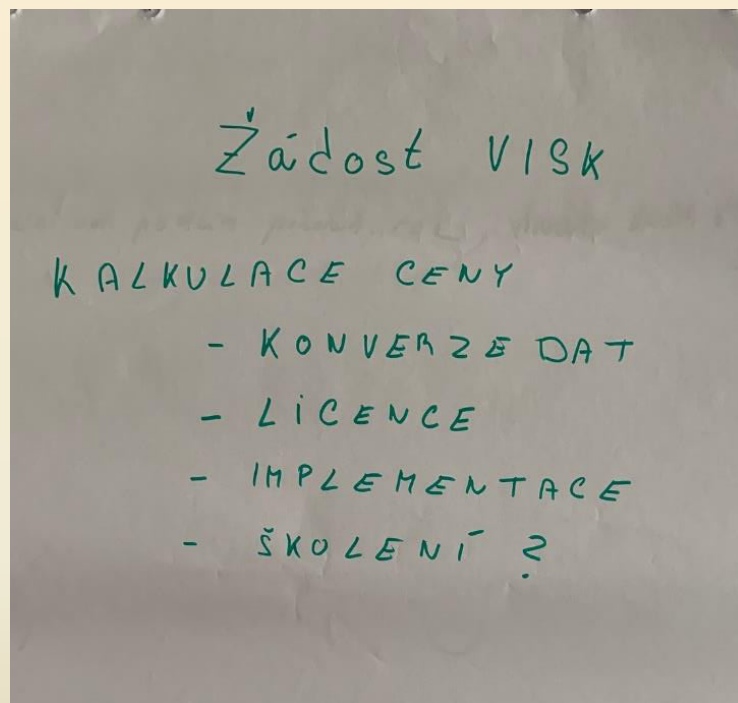 Žádost VISK
KALKULACE CENY
- KONVERZE DAT
- LICENCE
- IMPLEMENTACE
- ŠKOLENÍ ?